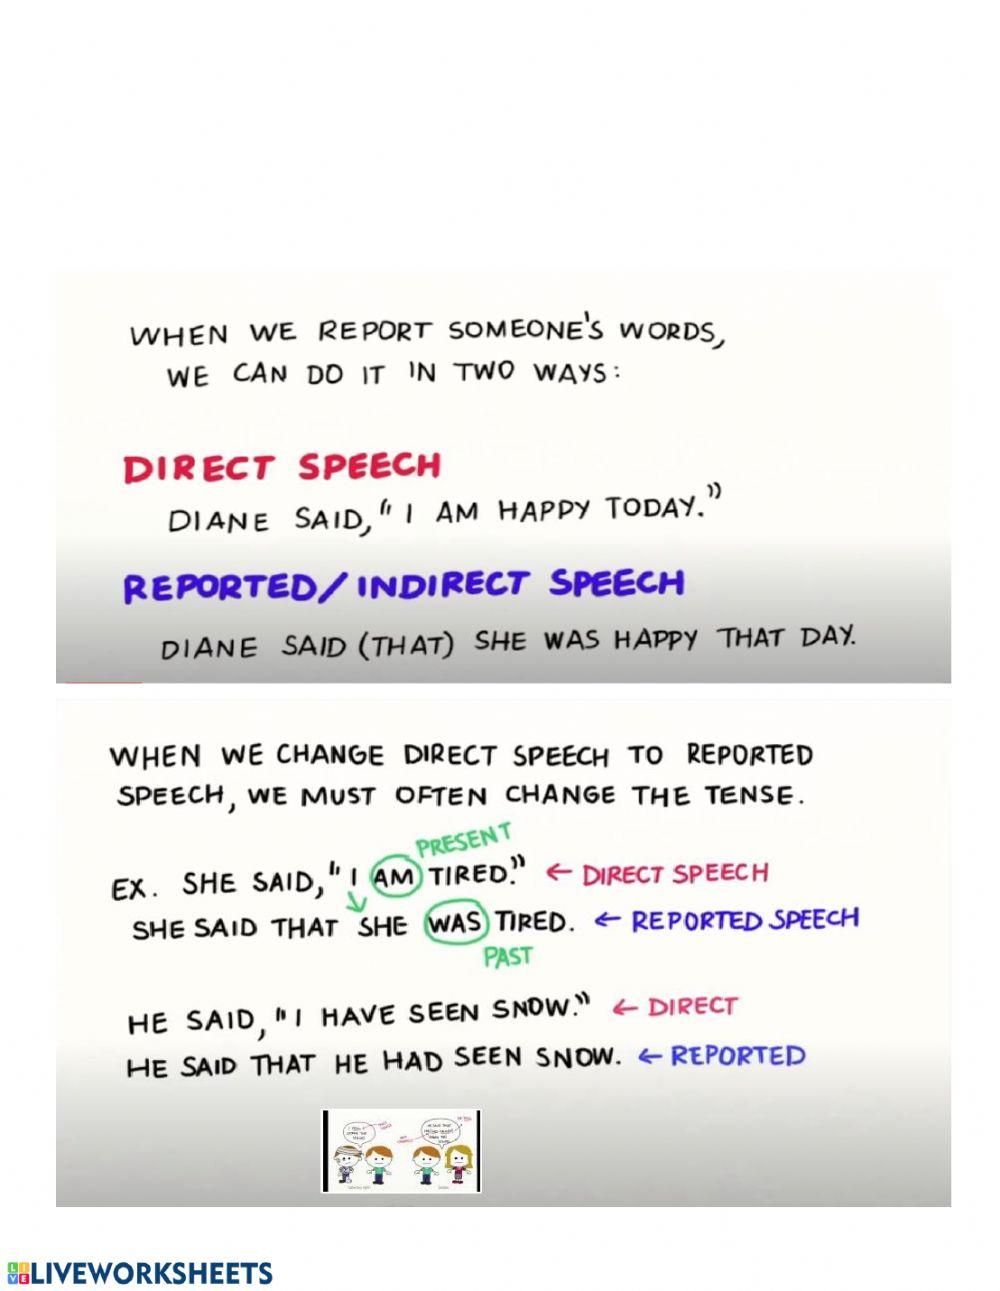 WHEN WE REPORT SOMEONE'S WORDS,
WE CAN DO IT IN TWO WAYS:
DIRECT SPEECH
DIANE SAID, "I AM HAPPY TODAY."
REPORTED/INDIRECT SPEECH
DIANE SAID (THAT) SHE WAS HAPPY THAT DAY.
WHEN WE CHANGE DIRECT SPEECH TO REPORTED
SPEECH, WE MUST OFTEN CHANGE THE TENSE.
PRESENT
EX. SHE SAID, "I AM TIRED." ← DIRECT SPEECH
SHE SAID THAT SHE WAS TIRED. ← REPORTED SPEECH
PAST
HE SAID, "I HAVE SEEN SNOW." ← DIRECT
HE SAID THAT HE HAD SEEN SNOW. ← REPORTED
LIVE LIVEWORKSHEETS